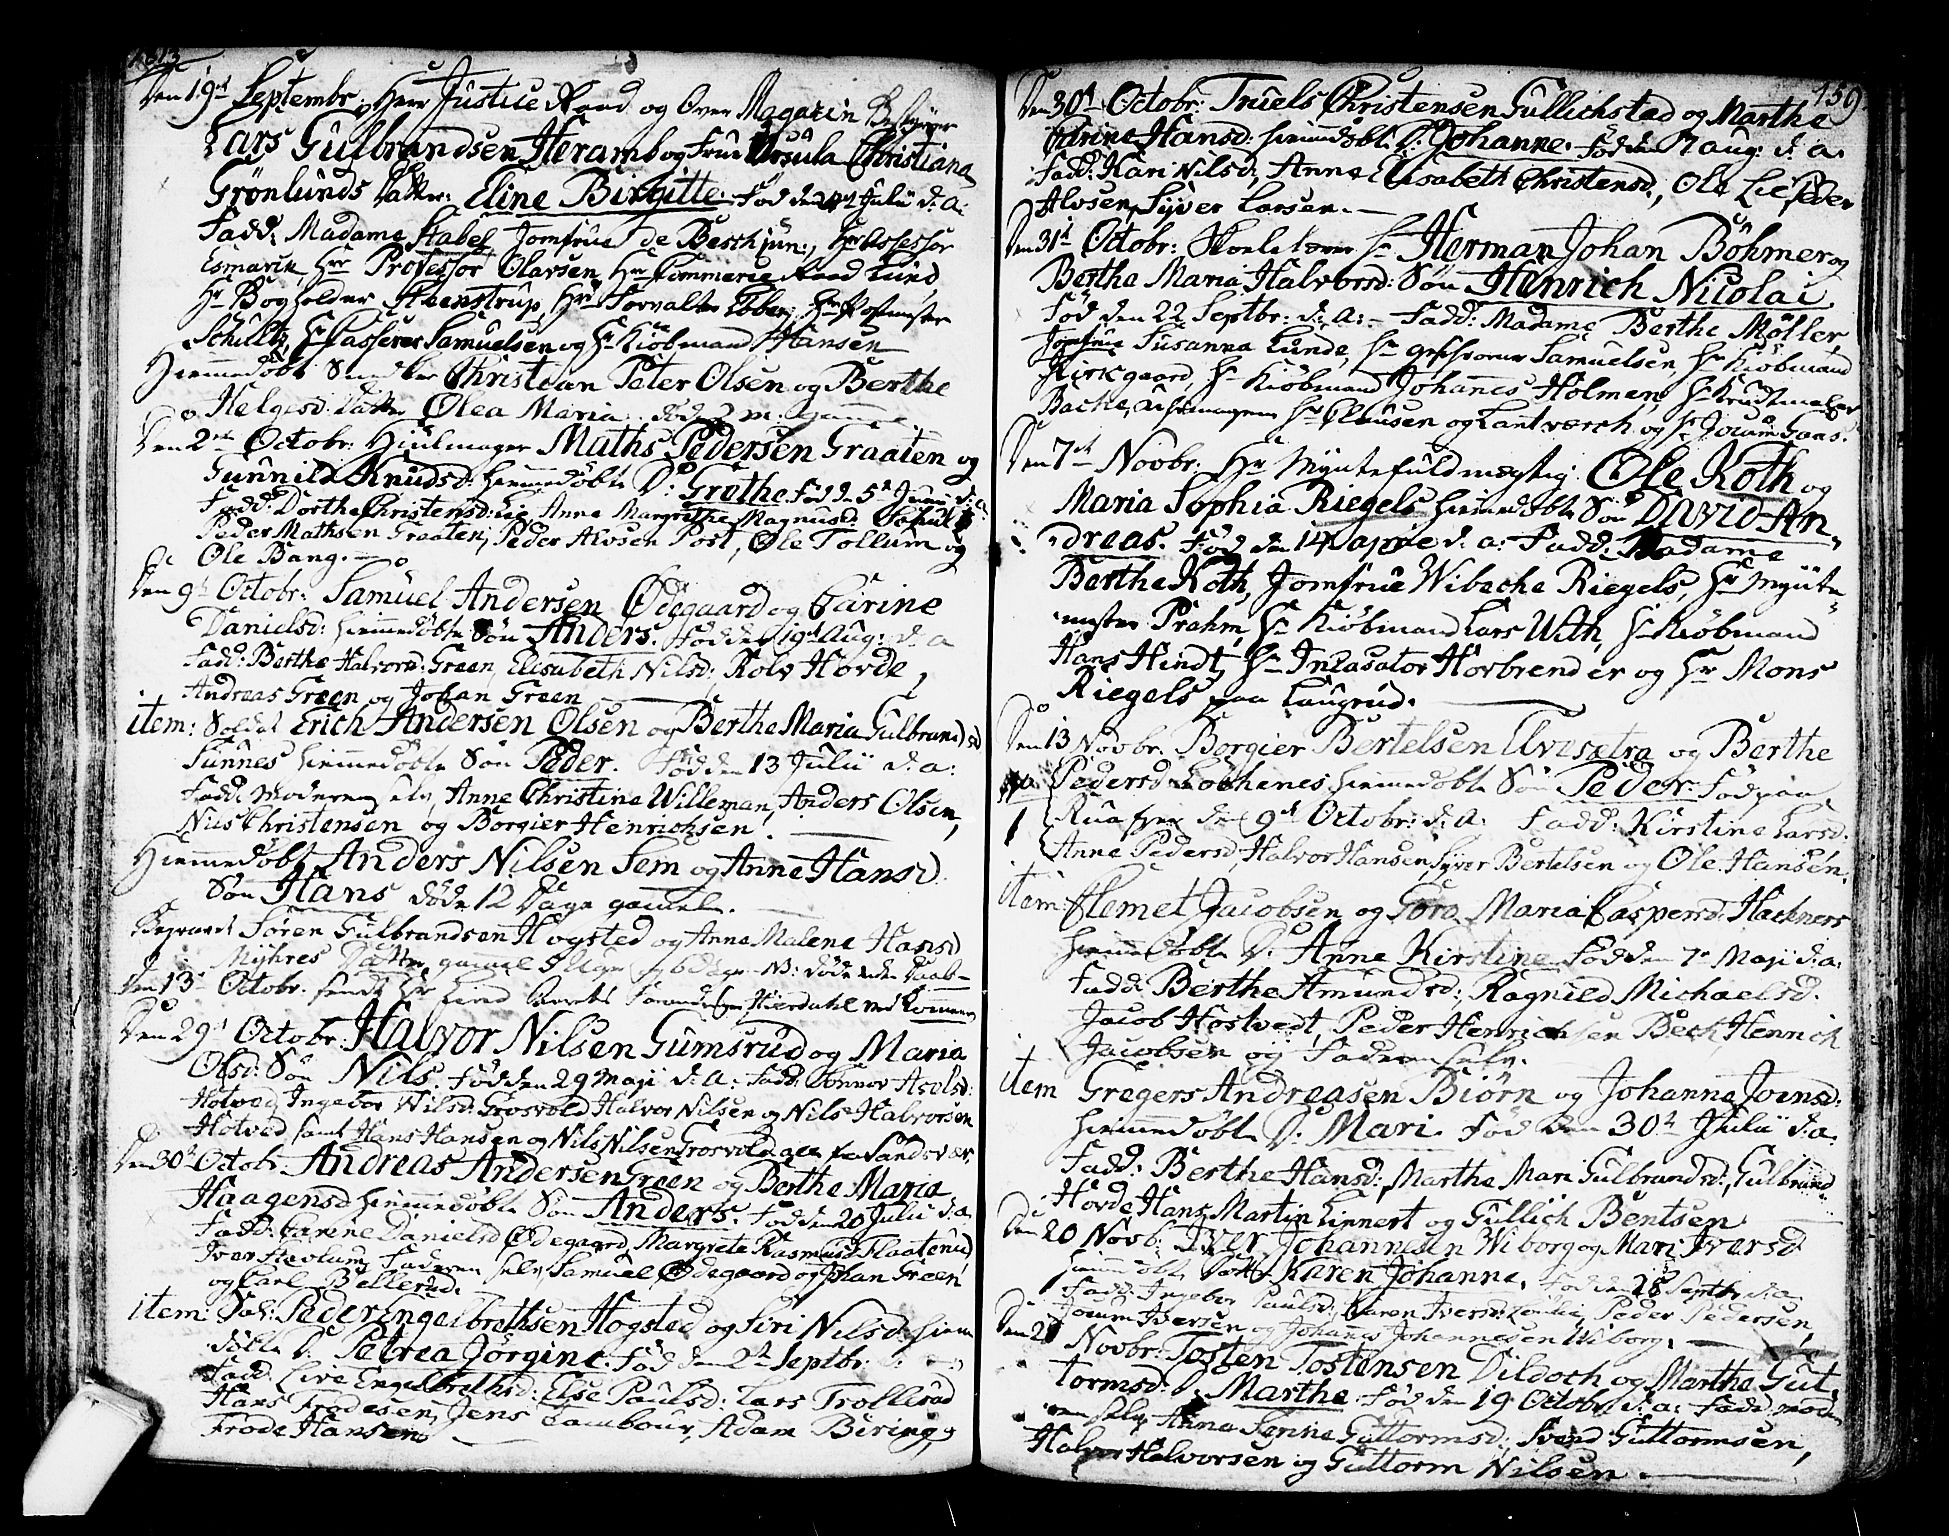 1813
Den 19d Septembr: Herr Justice Raad og Over Magazin Bestyrer
Lars Gulbrandsen Heramb og Frue Ursula Christiana
Grönlunds Datter: Eline Birgitte. Föd den Julii d: a:
Fadd: Madame Stabel Jomfrue de Beschjün:, Hr Assessor
Esmarck, Hrr Professor Olavsen, Hr Kammerie Raad Lund,
Hr Bogholder Steenstrup, Hrr Forvalter Ebber, Hr Postmester
Schultz, Hr Casserer Samuelsen og Hr Kiöbmand Hansen
Hiemmedöbt Snedker Christian Peter Olsen og Berthe
Helgesd: Datter Olea Maria. döde 2 m. gammel
Den 2den Octobr: Hiulmager Maths Pedersen Graaten og
Gunnild Knudsd: hiemmedöbte D: Grethe Föd d. 5t Junii d: a:
Fadd: Dorthe Christensd: Lie Anne Margrethe Magnusd:
Peder Mathsen Graaten, Peder Alvsen Post, Ole Tollum og
Ole Bang.
Den 9d Octobr: Samuel Andersen Ödegaard og Carine
Danielsd: hiemmedöbte Sön Anders. Föd den 19d Aug: d: a
Fadd: Berthe Halvorsd: Green, Elisabeth Nilsd: Rolv Hovde,
Andreas Green og Johan Green
item: Soldat Erich Andersen Olsen og Berthe Maria Gulbrandsd
Funnes hiemmedöbte Sön Peder. Föd den 13 Julii d: a:
Fadd: Moderen selv, Anne Christine Willeman, Anders Olsen,
Nils Christensen og Borgier Henrichsen.
Hiemmedöbt Anders Nilsen Sem og Anne Hansd.
Sön Hans döde 12 Dage gammel.
Begravet Sören Gulbrandsen Hogsted og Anne Malene Hansd
Myhres Datter, gammel 5 Uger 6 dage NB: döde uden Daab
Den 13d Octobr: sendt Hr Lind Hierdahl ved
Den 29d Octobr: Halvor Nilsen Gumsrud og Maria
Olsd: Sön Nils. Föd den 29 Maji d: a: Fadd: Gunnor Aslesd:
Hotved Ingebor Nilsd: Grosvold Halvor Nilsen og Nils Halvorsen
Hotved samt Hans Hansen og Nils Nilsen Grosvold fra Sandsvær,
Den 30t Octobr. Andreas Andersen Green og Berthe Maria
Haagensd hiemmedöbte Sön Anders. Föd den 20 Julii d: a
Fadd: Carine Danielsd Ödegaard, Margrete Rasmusd Flaatenü
Iver Hevlum, Faderen selv, Samuel Ödegaard og Johan Green
og Carl Bellerud.
item: Peder Engelbrethsen Hogsted og Siri Nilsd: hiem
döbte D: Petrea Jörgine. Föd den 2t Septbr:
Fadd: Live Engelbrethsd: Else Paulsd: Lars Trollerud
Hans Frodesen, Jens Tambour, Adam Biering og
Frode Hansen
159
Den 30t Octobr: Truels Christensen Gullichstad og Marthe
Carine Hansd: hiemmedöbte D: Johanne. Föd den 7 Aug: d: a.
Fadd: Kari Nilsd, Anne Elisabeth Christensd, Ole Lie, Peder
Alvsen, Syver Larsen.
Den 31t Octobr: Skoelelærer Hr Herman Johan Böhmer og
Berthe Maria Halvorsd: Sön Henrich Nicolai.
Föd den 22 Septbr: d: a: Fadd: Madame Berthe Möller,
Jomfrue Susanna Lunde, Hr Geschvorner Samuelsen, Hr Kiöbmand
Kirkgaard, Hr Kiöbmand Johannes Holmen, Hr Krudtmager
Bache, Uhrmagern Hr Clausen og Lantværch og Hr Joram Gaas.
Den 7d Novbr: Hr Myntefuldmægtig Ole Roth og
Maria Sophia Riegels hiemmedöbte Sön DAVID AN-
dreas. Föd den 14 Aprie d: a: Fadd: Madame
Berthe Roth, Jomfrue Wibeche Riegels, Hr Mynte-
mester Prahm, Hr Kiöbmand Lars With, Hr Kiöbmand
Hans Hindt, Hr Incasator Horbrender og Hr Mons
Riegels paa Laugrud.
Den 13 Novbr. Borgier Bertelsen Elvesetra og Berthe
Pedersd Lobenes hiemmedöbte Sön Peder. Föd paa
Ruaspær den 9d Octobr: d: a. Fadd: Kirstine Larsd:
Anne Pedersd, Halvor Hansen, Syver Bertelsen og Ole Hansen.
item Clemet Jacobsen og Gora Maria Caspersd: Hackners
hiemmedöbte D: Anne Kirstine. Föd den 7de Maji d: a.
Fadd: Berthe Amundsd: Ragnild Michaelsd.
Jacob Hostvedt, Peder Henrichsen Beck, Henrich
Jacobsen og Faderen selv.
item Gregers Andreasen Biörn og Johanne Joensd:
hiemmedöbte D: Mari. Föd den 30t Julii d: a.
Fadd: Berthe Hansd:, Marthe Mari Gulbrandsd:, Gulbrand
Hovde Hans Martin Linnert og Gullich Bentsen
Den 20 Novbr: Iver Johannesen Wiborg og Mari Iversd
hiemmedöbte Datter Karen Johanne, Föd den 28 Septbr: d: a.
Fadd: Ingebor Paulsd:, Karen Iversd:, Peder Pedersen,
Joram Iversen og Johanes Johannesen Wiborg.
Den 21 Novbr: Tosten Tostensen Dildoch og Marthe Gut-
tormsd: D: Marthe. Föd den 19 Octobr d: a. Fadd: Moder
en selv Anna Serine Guttormsd: Svend Guttormsen,
Halvor Halvorsen og Guttorm Nilsen.